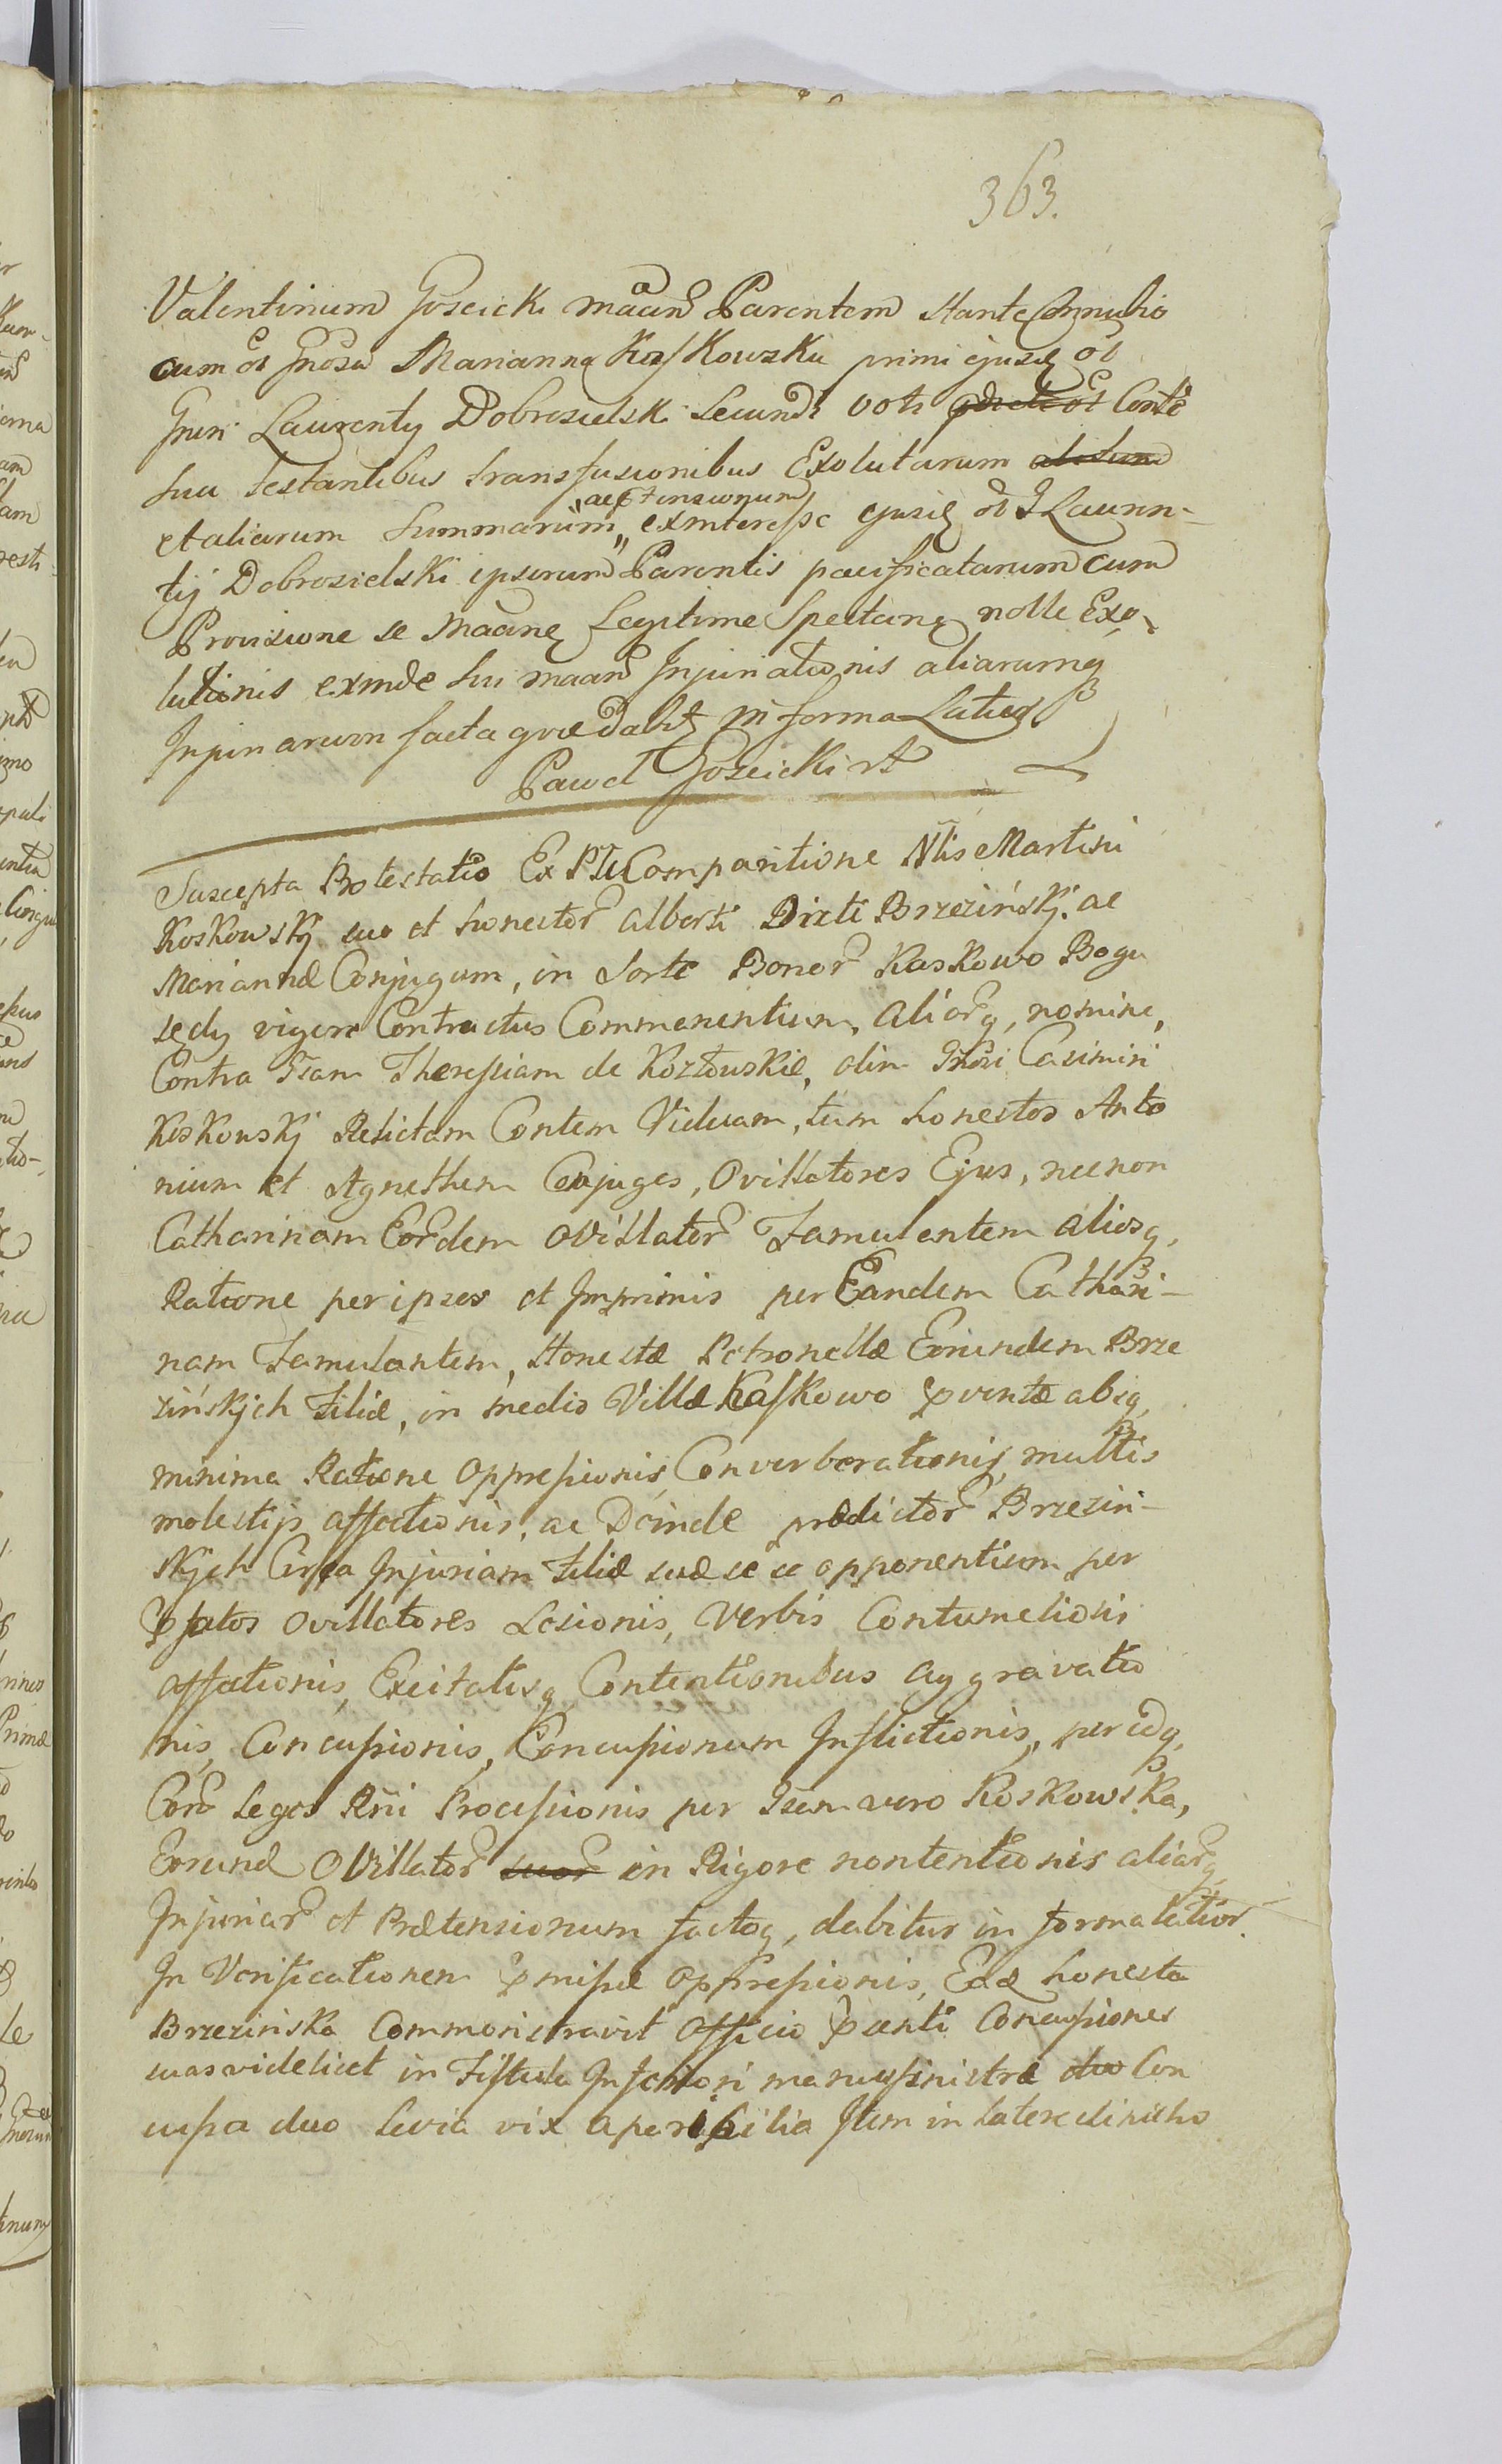 363.
Valentinum Goscicki mãan Parentem stante Connubio
cum ol Gnosa Marianna Koskowska primi ejusq ol
Gnri Laurenty Dobrosielski Secundi voti Conte
sua testantibus transfusionibus Exolutarum
et aliarum Summarum „ ac ptensionum „ exinteresse ejusq ol G Lauren-
tij Dobrosielski ipsorum Parentis pacificatarum cum
Provisione se mãane Legitime Spectang nolle Exo
lutionis exinde sui maan Injuriationis aliarumq
Injuriarum facta quæ dabit in forma Latior
Paweł Goscicki
Suscepta Protestatio Ex Pti Comparitione Nlis Martini
Koskowskij suo et honestor Alberti Dicti Brzezińskij ac
Mariannæ Conjugum, in sorte Bonor Kaskowo Bogu
sędy vigore Contractus Commenentium, Aliorq, nomine,
Contra Gsam Theressiam de Kozłowskie, olim Gnosi Casimiri
Koskowskj Relictam Contem Viduam, tum honestos Anto
nium et Agnethem Conjuges, Ovillatores Ejus, necnon
Catharinam Eordem Ovillator Famulantem aliosq,
Ratione per ipsos et Imprimis per Eandem Cathari-
nam Famulantem, Honestæ Petronellæ Eorundem Brze
zińskjch Filiæ, in medio Villæ Kaskowo pventæ absq,
minima Ratione Oppressionis, Converberationis, multis
molestijs affectionis, ac Deinde prædictor Brzezin-
skjch Circa Injuriam Filiæ suæ se se opponentium per
pfatos Ovillatores Læsionis, Verbis Contumeliosis
affectionis, Excitatisq Contentionibus aggravatio
nis, Concussionis, Concussionum Inflictionis, per idq,
Contr Leges Rñi Processionis per Gsam vero Koskowska,
Eorund Ovillator suor in Rigore nontentionis aliarq
Injuriar et Prætensionum factoq, dabitur in forma latior.
In Verificationem pmissæ Oppressionis, Ead honesta
Brzezinska Commonstravit Officio psenti Concussiones
suas videlicet in Fistula Inferiori manus sinistræ duo Con
cussa duo Levia vix aperibilia Item in latere sinistro